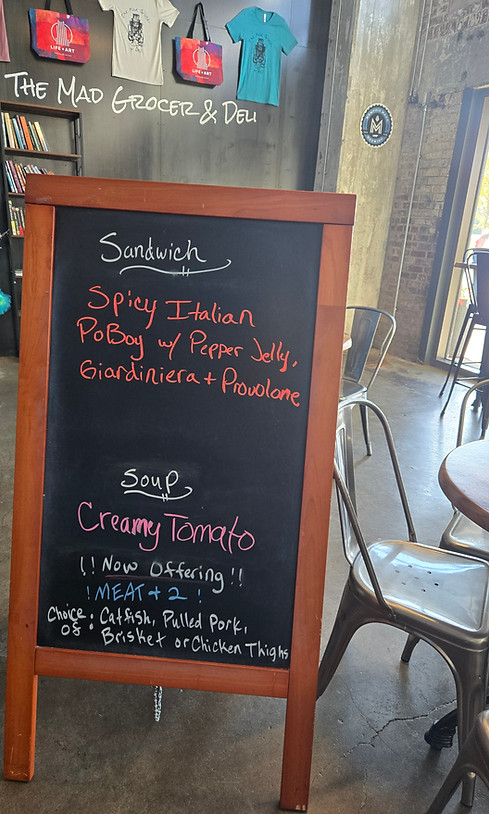 LIFE IS ART
LIFE IS ART
The Mad Grocer & Deli
Sandwich
Spicy Italian
PoBoy w/ Pepper Jelly,
Giardiniera + Provolone
Soup
Creamy Tomato
!! Now Offering !!
! MEAT + 2 !
Choice of: Catfish, Pulled Pork,
Brisket or Chicken Thighs